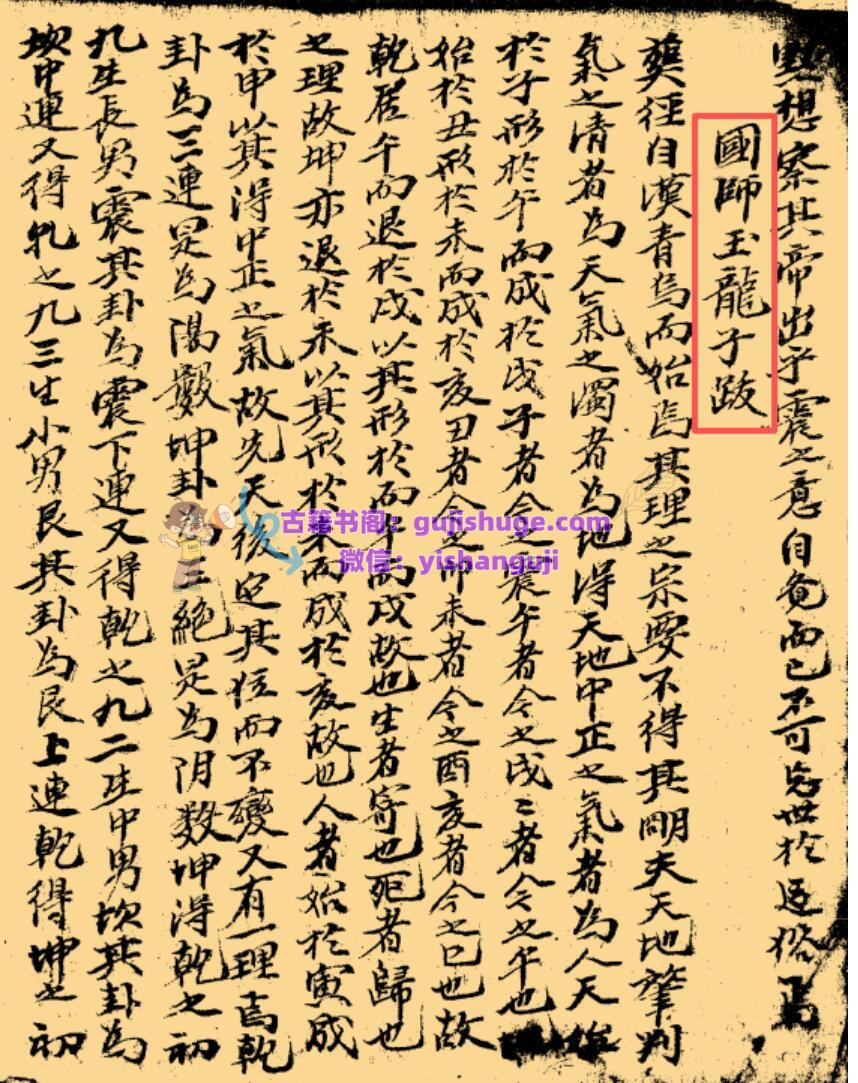 默想察其帝出乎震之意自勉而已不可為世於逐俗焉
國師玉龍子跋
葬徑自漢青烏而始焉其理之宗要不得其明夫天地肇判
氣之清者為天氣之濁者為地得天地中正之氣者為人天始
於子形於午而成於戌子者今之震午者今之戌戌者今之午也
始於丑形於未而成於亥丑者今之 未者今之酉亥者今之巳也故
乾居午而退於戌以其形於而午而戌故也生者寄也死者歸也
之理故坤亦退於未以其形於未而成於亥故也人者始於寅成
於申以其得中正之氣故先天後定其位而不變又有一理言乾
卦為三連是為陽數坤卦為三絕是為阴数坤得乾之初
九生長男震其卦為震下連又得乾之九二生中男坎其卦為
坎中連又得乹之九三生小男艮其卦為艮上連乾得坤之初
古籍书阁：gujishuge.com
微信：yishanguji